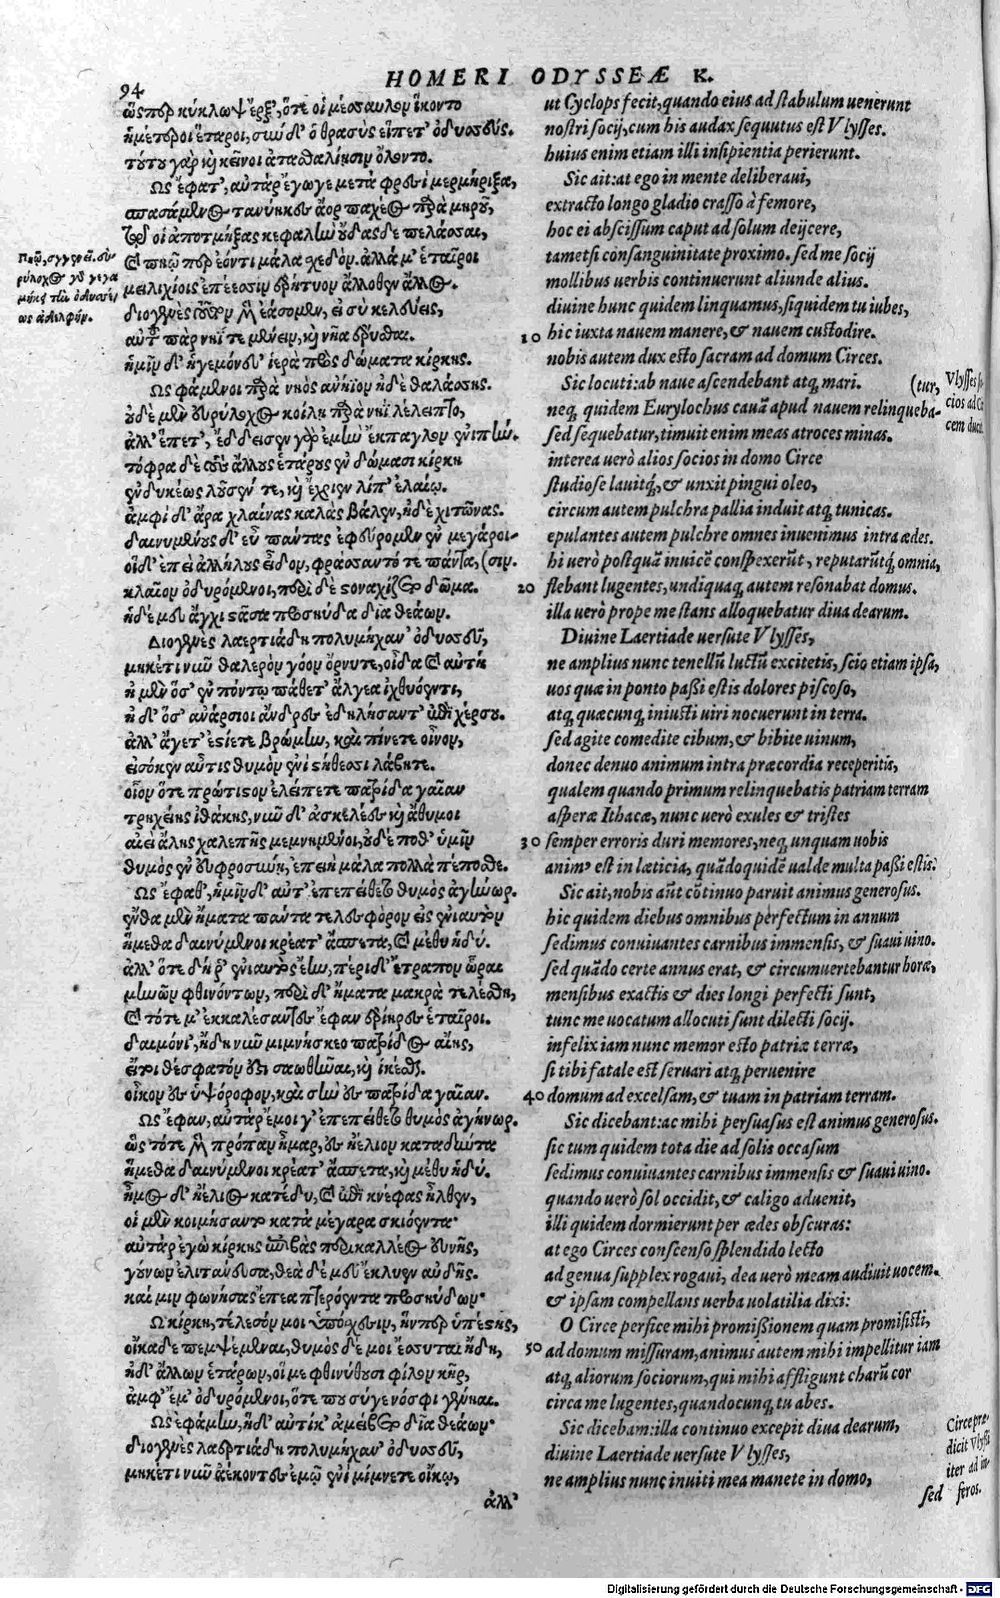 94
HOMERI ODYSSEÆ K.
ὥς περ κύκλωψ ἔρξ', ὅτε οἱ μέσσαυλον ἵκοντο
ἡμέτεροι ἕταροι, σιω δ' ὁ θρασὺς εἵπετ' ὀδυσσεύς.
τούτου γὰρ κὶ κεῖνοι ἀτασθαλίησιν ὄλοντο.
Ως ἔφατ', αὐτὰρ ἔγωγε μετὰ φρεσὶ μερμήριξα,
σπασάμενος τανύηκες ἄορ παχέος παρὰ μηροῦ,
τῷ οἱ ἀποτμήξας κεφαλὼ οὖδας δὲ πελάσσαι,
καὶ πηῷ περ ἐόντι μάλα σχεδόν. ἀλλά μ' ἑταῖροι
μειλιχίοις ἐπέεσσιν ἐρήτυον ἄλλοθεν ἄλλος.
διογενὲς τοῦτον μὲν ἐάσομεν, εἰ σὺ κελεύεις,
αὐτοῦ πὰρ νηΐ τε μένειν, κὶ νῆα ἔρυσθαι.
ἡμῖν δ' ἡγεμόνευ' ἱερὰ πρὸς δώματα κίρκης.
Ως φάμενοι παρὰ νηὸς ἀνήϊον ἠδὲ θαλάσσης.
οὐδὲ μὲν εὐρύλοχος κοίλη παρὰ νηῒ λέλειπτο,
ἀλλ' ἕπετ', ἔδδεισεν γὰρ ἐμὼ ἔκπαγλον ἐνιπώ.
τόφρα δὲ τοὺς ἄλλους ἑτάρους ἐν δώμασι κίρκη
ἐνδυκέως λοῦσέν τε, κὶ ἔχρισεν λίπ' ἐλαίῳ.
ἀμφὶ δ' ἄρα χλαίνας καλὰς βάλεν, ἠδὲ χιτῶνας.
δαινυμένους δ' εὖ πάντας ἐφεύρομεν ἐν μεγάροι-
οἱ δ' ἐπεὶ ἀλλήλους εἶδον, φράσσαντό τε πάντα, (σιν.
κλαῖον ὀδυρόμενοι, περὶ δὲ στοναχίζετο δῶμα.
ἡ δέ μευ ἄγχι στᾶσα προσηύδα δῖα θεάων.
Διογενὲς λαερτιάδη πολυμήχαν' ὀδυσσεῦ,
μηκέτι νιῶ θαλερὸν γόον ὄρνυτε, οἶδα καὶ αὐτὴ
ἠ μὲν ὅσ' ἐν πόντῳ πάθετ' ἄλγεα ἰχθυόεντι,
ἠ δ' ὅσ' ἀνάρσιοι ἄνδρες ἐδηλήσαντ' ἐπὶ χέρσου.
ἀλλ' ἄγετ' ἐσθίετε βρώμω, καὶ πίνετε οἶνον,
εἰσόκεν αὖτις θυμὸν ἐνὶ στήθεσσι λάβητε.
οἷον ὅτε πρώτιστον ἐλείπετε πατρίδα γαῖαν
τρηχείης ἰθάκης, νιῶ δ' ἀσκελέες κὶ ἄθυμοι
αἰεὶ ἄλης χαλεπῆς μεμνημένοι, οὐδέ ποθ' ὑμῖν
θυμὸς ἐν εὐφροσύνη, ἐπειὴ μάλα πολλὰ πέποσθε.
Ως ἔφαθ', ἡμῖν δ' αὖτ' ἐπεπείθετο θυμὸς ἀγήνωρ.
ἔνθα μὲν ἤματα πάντα τελεσφόρον εἰς ἐνιαυτὸν
ἥμεθα δαινύμενοι κρέατ' ἄσπετα, καὶ μέθυ ἡδύ.
ἀλλ' ὅτε δή ῥ' ἐνιαυτὸς ἔην, περὶ δ' ἔτραπον ὧραι
μηνῶν φθινόντων, περὶ δ' ἤματα μακρὰ τελέσθη,
καὶ τότε μ' ἐκκαλέσαντες ἔφαν ἐρίηρες ἑταῖροι.
δαιμόνι', ἤδη νιῶ μιμνήσκεο πατρίδος αἴης,
εἴ τοι θέσφατόν ἐστι σαωθῆναι, κὶ ἱκέσθαι
οἶκον ἐς ὑψόροφον, καὶ σὼ ἐς πατρίδα γαῖαν.
Ως ἔφαν, αὐτὰρ ἔμοι γ' ἐπεπείθετο θυμὸς ἀγήνωρ.
ὣς τότε μὲν πρόπαν ἦμαρ, ἐς ἠέλιον καταδύντα
ἥμεθα δαινύμενοι κρέατ' ἄσπετα, κὶ μέθυ ἡδύ.
ἦμος δ' ἠέλιος κατέδυ, καὶ ἐπὶ κνέφας ἦλθεν,
οἱ μὲν κοιμήσαντο κατὰ μέγαρα σκιόεντα·
αὐτὰρ ἐγὼ κίρκης ἐπιβὰς περικαλλέος εὐνῆς,
γούνων ἐλιτάνευσα, θεὰ δέ μευ ἔκλυεν αὐδῆς.
καί μιν φωνήσας ἔπεα πτερόεντα προσηύδων·
Ω κίρκη, τέλεσόν μοι ὑπόσχεσιν, ἥνπερ ὑπέστης,
οἴκαδε πεμψέμεναι, θυμὸς δέ μοι ἔσσυται ἤδη,
ἠδ' ἄλλων ἑτάρων, οἵ με φθινύθουσι φίλον κῆρ,
ἀμφ' ἔμ' ὀδυρόμενοι, ὅτε που σύγε νόσφι γένηαι.
Ως ἐφάμω, ἡ δ' αὐτίκ' ἀμείβετο δῖα θεάων·
διογενὲς λαερτιάδη πολυμήχαν' ὀδυσσεῦ,
μηκέτι νιῶ ἀέκοντες ἐμῷ ἐνὶ μίμνετε οἴκῳ,
ἀλλ'
ut Cyclops fecit, quando eius ad stabulum uenerunt
nostri socij, cum his audax sequutus est Vlysses.
huius enim etiam illi insipientia perierunt.
Sic ait: at ego in mente deliberaui,
extracto longo gladio crasso à femore,
hoc ei abscissum caput ad solum deijcere,
tametsi consanguinitate proximo. sed me socij
mollibus uerbis continuerunt aliunde alius.
diuine hunc quidem linquamus, siquidem tu iubes,
10 hic iuxta nauem manere, & nauem custodire.
nobis autem dux esto sacram ad domum Circes.
Sic locuti: ab naue ascendebant atq; mari. (tur,
neq; quidem Eurylochus cauã apud nauem relinqueba-
sed sequebatur, timuit enim meas atroces minas.
interea uerò alios socios in domo Circe
studiose lauitq;, & unxit pingui oleo,
circum autem pulchra pallia induit atq; tunicas.
epulantes autem pulchre omnes inuenimus intra ædes.
hi uerò postquã inuicē conspexerũt, reputarũtq; omnia,
20 flebant lugentes, undiquaq; autem resonabat domus.
illa uerò prope me stans alloquebatur diua dearum.
Diuine Laertiade uersute Vlysses,
ne amplius nunc tenellũ luctũ excitetis, scio etiam ipsa,
uos quæ in ponto paßi estis dolores piscoso,
atq; quæcunq; iniusti uiri nocuerunt in terra.
sed agite comedite cibum, & bibite uinum,
donec denuo animum intra præcordia receperitis,
qualem quando primum relinquebatis patriam terram
asperæ Ithacæ, nunc uerò exules & tristes
30 semper erroris duri memores, neq; unquam uobis
anim⁹ est in læticia, quãdoquidē ualde multa paßi estis.
Sic ait, nobis aũt cōtinuo paruit animus generosus.
hic quidem diebus omnibus perfectum in annum
sedimus conuiuantes carnibus immensis, & suaui uino.
sed quãdo certe annus erat, & circumuertebantur horæ,
mensibus exactis & dies longi perfecti sunt,
tunc me uocatum allocuti sunt dilecti socij.
infelix iam nunc memor esto patriæ terræ,
si tibi fatale est seruari atq; peruenire
40 domum ad excelsam, & tuam in patriam terram.
Sic dicebant: ac mihi persuasus est animus generosus.
sic tum quidem tota die ad solis occasum
sedimus conuiuantes carnibus immensis & suaui uino.
quando uerò sol occidit, & caligo aduenit,
illi quidem dormierunt per ædes obscuras:
at ego Circes conscenso splendido lecto
ad genua supplex rogaui, dea uerò meam audiuit uocem.
& ipsam compellans uerba uolatilia dixi:
O Circe perfice mihi promißionem quam promisisti,
50 ad domum missuram, animus autem mihi impellitur iam
atq; aliorum sociorum, qui mihi affligunt charũ cor
circa me lugentes, quandocunq; tu abes.
Sic dicebam: illa continuo excepit diua dearum,
diuine Laertiade uersute Vlysses,
ne amplius nunc inuiti mea manete in domo,
sed
Vlysses so
cios ad Cir
cem ducit.
Circe præ-
dicit Vlyssi
iter ad in-
feros.
Digitalisierung gefördert durch die Deutsche Forschungsgemeinschaft - DFG